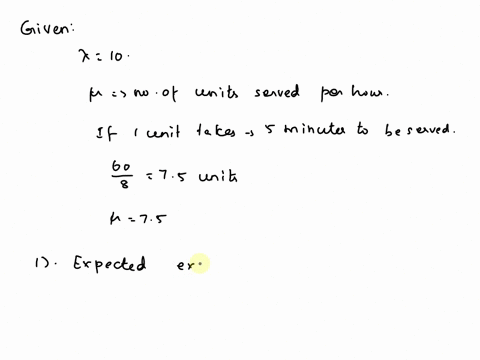 Given:
λ = 10.
μ => no. of units served per hour.
If 1 unit takes → 5 minutes to be served.
60/8 = 7.5 units
μ = 7.5
1). Expected ex